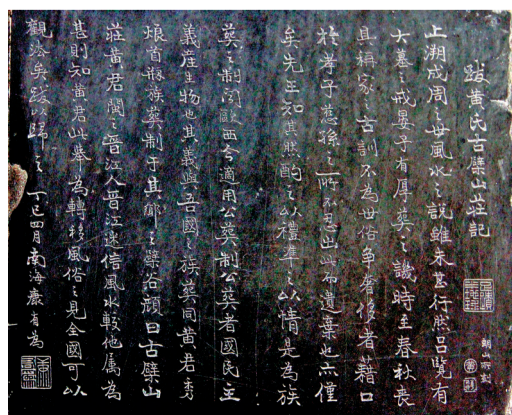 跋黃氏古檗山莊記
上溯成周之世風水之說雖未甚行然呂覽有
大墓之戒晏子有厚葬之譏時至春秋喪
具稱家之古訓不為世俗爭奢侈者藉口
於孝子慈孫之所不忍出此而遺棄也亦僅
矣先王知其然酌之以禮準之以情是為族
葬之制歐西今適用公葬制公葬者國民主
義產生物也其義與五國之族葬同黃君秀
烺首族葬制于其鄉之檗谷顏曰古檗山
莊黃君閩之晉江人晉江迷信風水較他屬為
甚則知黃君此舉為轉移風俗之見全國可以
觀法矣跋以歸之 丁巳四月南海康有為